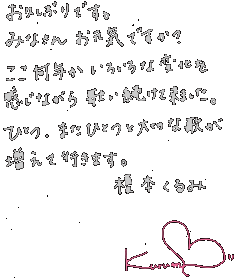 お久しぶりです。
みなさん お元気ですか?
ここ何年か いろいろな変化を
感じながら 歌い続けて来ました。
ひとつ、またひとつと大切な歌が
増えて行きます。
橿本くるみ
Kurumi